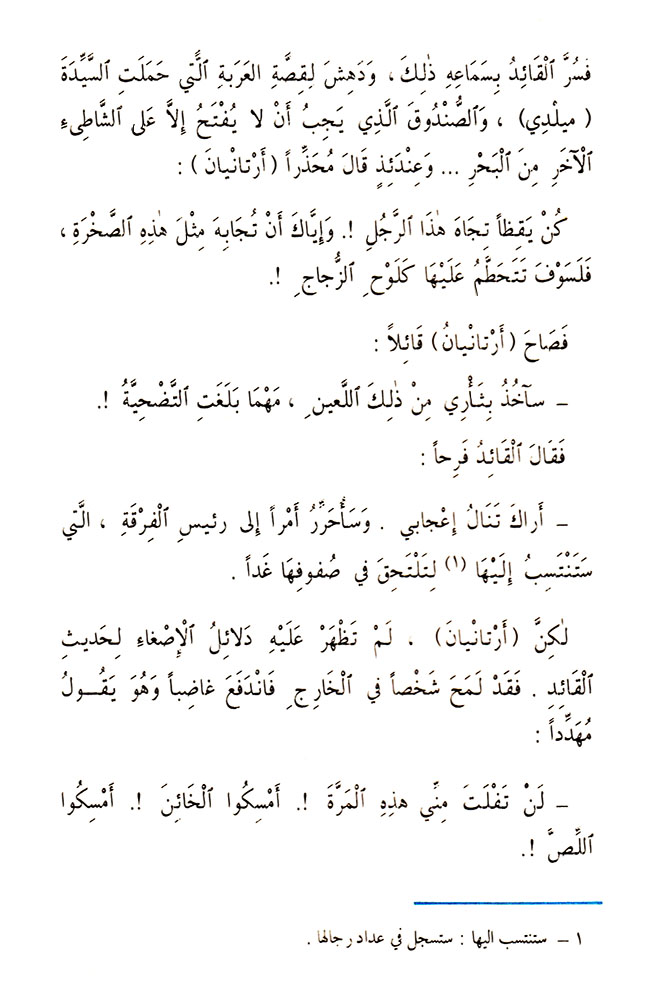 فَسُرَّ ٱلْقَائِدُ بِسَمَاعِهِ ذٰلِكَ ، وَدَهِشَ لِقِصَّةِ العَرَبَةِ ٱلَّتي حَمَلَتِ ٱلسَّيِّدَةَ
( ميلْدِي) ، وَٱلصُّنْدُوقَ ٱلَّذِي يَجِبُ أَنْ لا يُفْتَحُ إِلاَّ عَلى ٱلشَّاطِىءِ
ٱلْآخَرِ مِنَ ٱلْبَحْرِ ... وَعِنْدَئِذٍ قَالَ مُحَذِّراً ( أَرْتانْيانَ ) :
كُنْ يَقِظاً تِجَاهَ هٰذَا ٱلرَّجُلِ !. وَإِيَّاكَ أَنْ تُجَابِهَ مِثْلَ هٰذِهِ ٱلصَّخْرَةِ ،
فَلَسَوْفَ تَتَحَطَّمُ عَلَيْهَا كَلَوْحِ ٱلزُّجاجِ !.
فَصَاحَ ( أَرْتانْيانُ ) قَائِلاً :
– سآخُذُ بِثَأْرِي مِنْ ذٰلِكَ ٱللَّعينِ ، مَهْمَا بَلَغَتِ ٱلتَّضْحِيَّةُ !.
فَقَالَ ٱلْقَائِدُ فَرِحاً :
– أَراكَ تَنَالُ إِعْجابي . وَسَأُحَرِّرُ أَمْراً إِلى رئيسِ ٱلْفِرْقَةِ ، الَّتي
سَتَنْتَسِبُ إِلَيْهَا (١) لِتَلْتَحِقَ في صُفوفِهَا غَداً .
لٰكِنَّ ( أَرْتانْيانَ ) ، لَمْ تَظْهَرْ عَلَيْهِ دَلائِلُ ٱلْإِصْغاءِ لِحَديثِ
ٱلْقَائِدِ . فَقَدْ لَمَحَ شَخْصاً في ٱلْخَارِجِ فَانْدَفَعَ غاضِباً وَهُوَ يَقُـولُ
مُهَدِّداً :
– لَنْ تَفْلَتَ مِنِّي هذِهِ ٱلْمَرَّةَ !. أَمْسِكُوا ٱلْخَائِنَ !. أَمْسِكُوا
ٱللِّصَّ !.
١ – ستنتسب اليها : ستسجل في عداد رجالها .